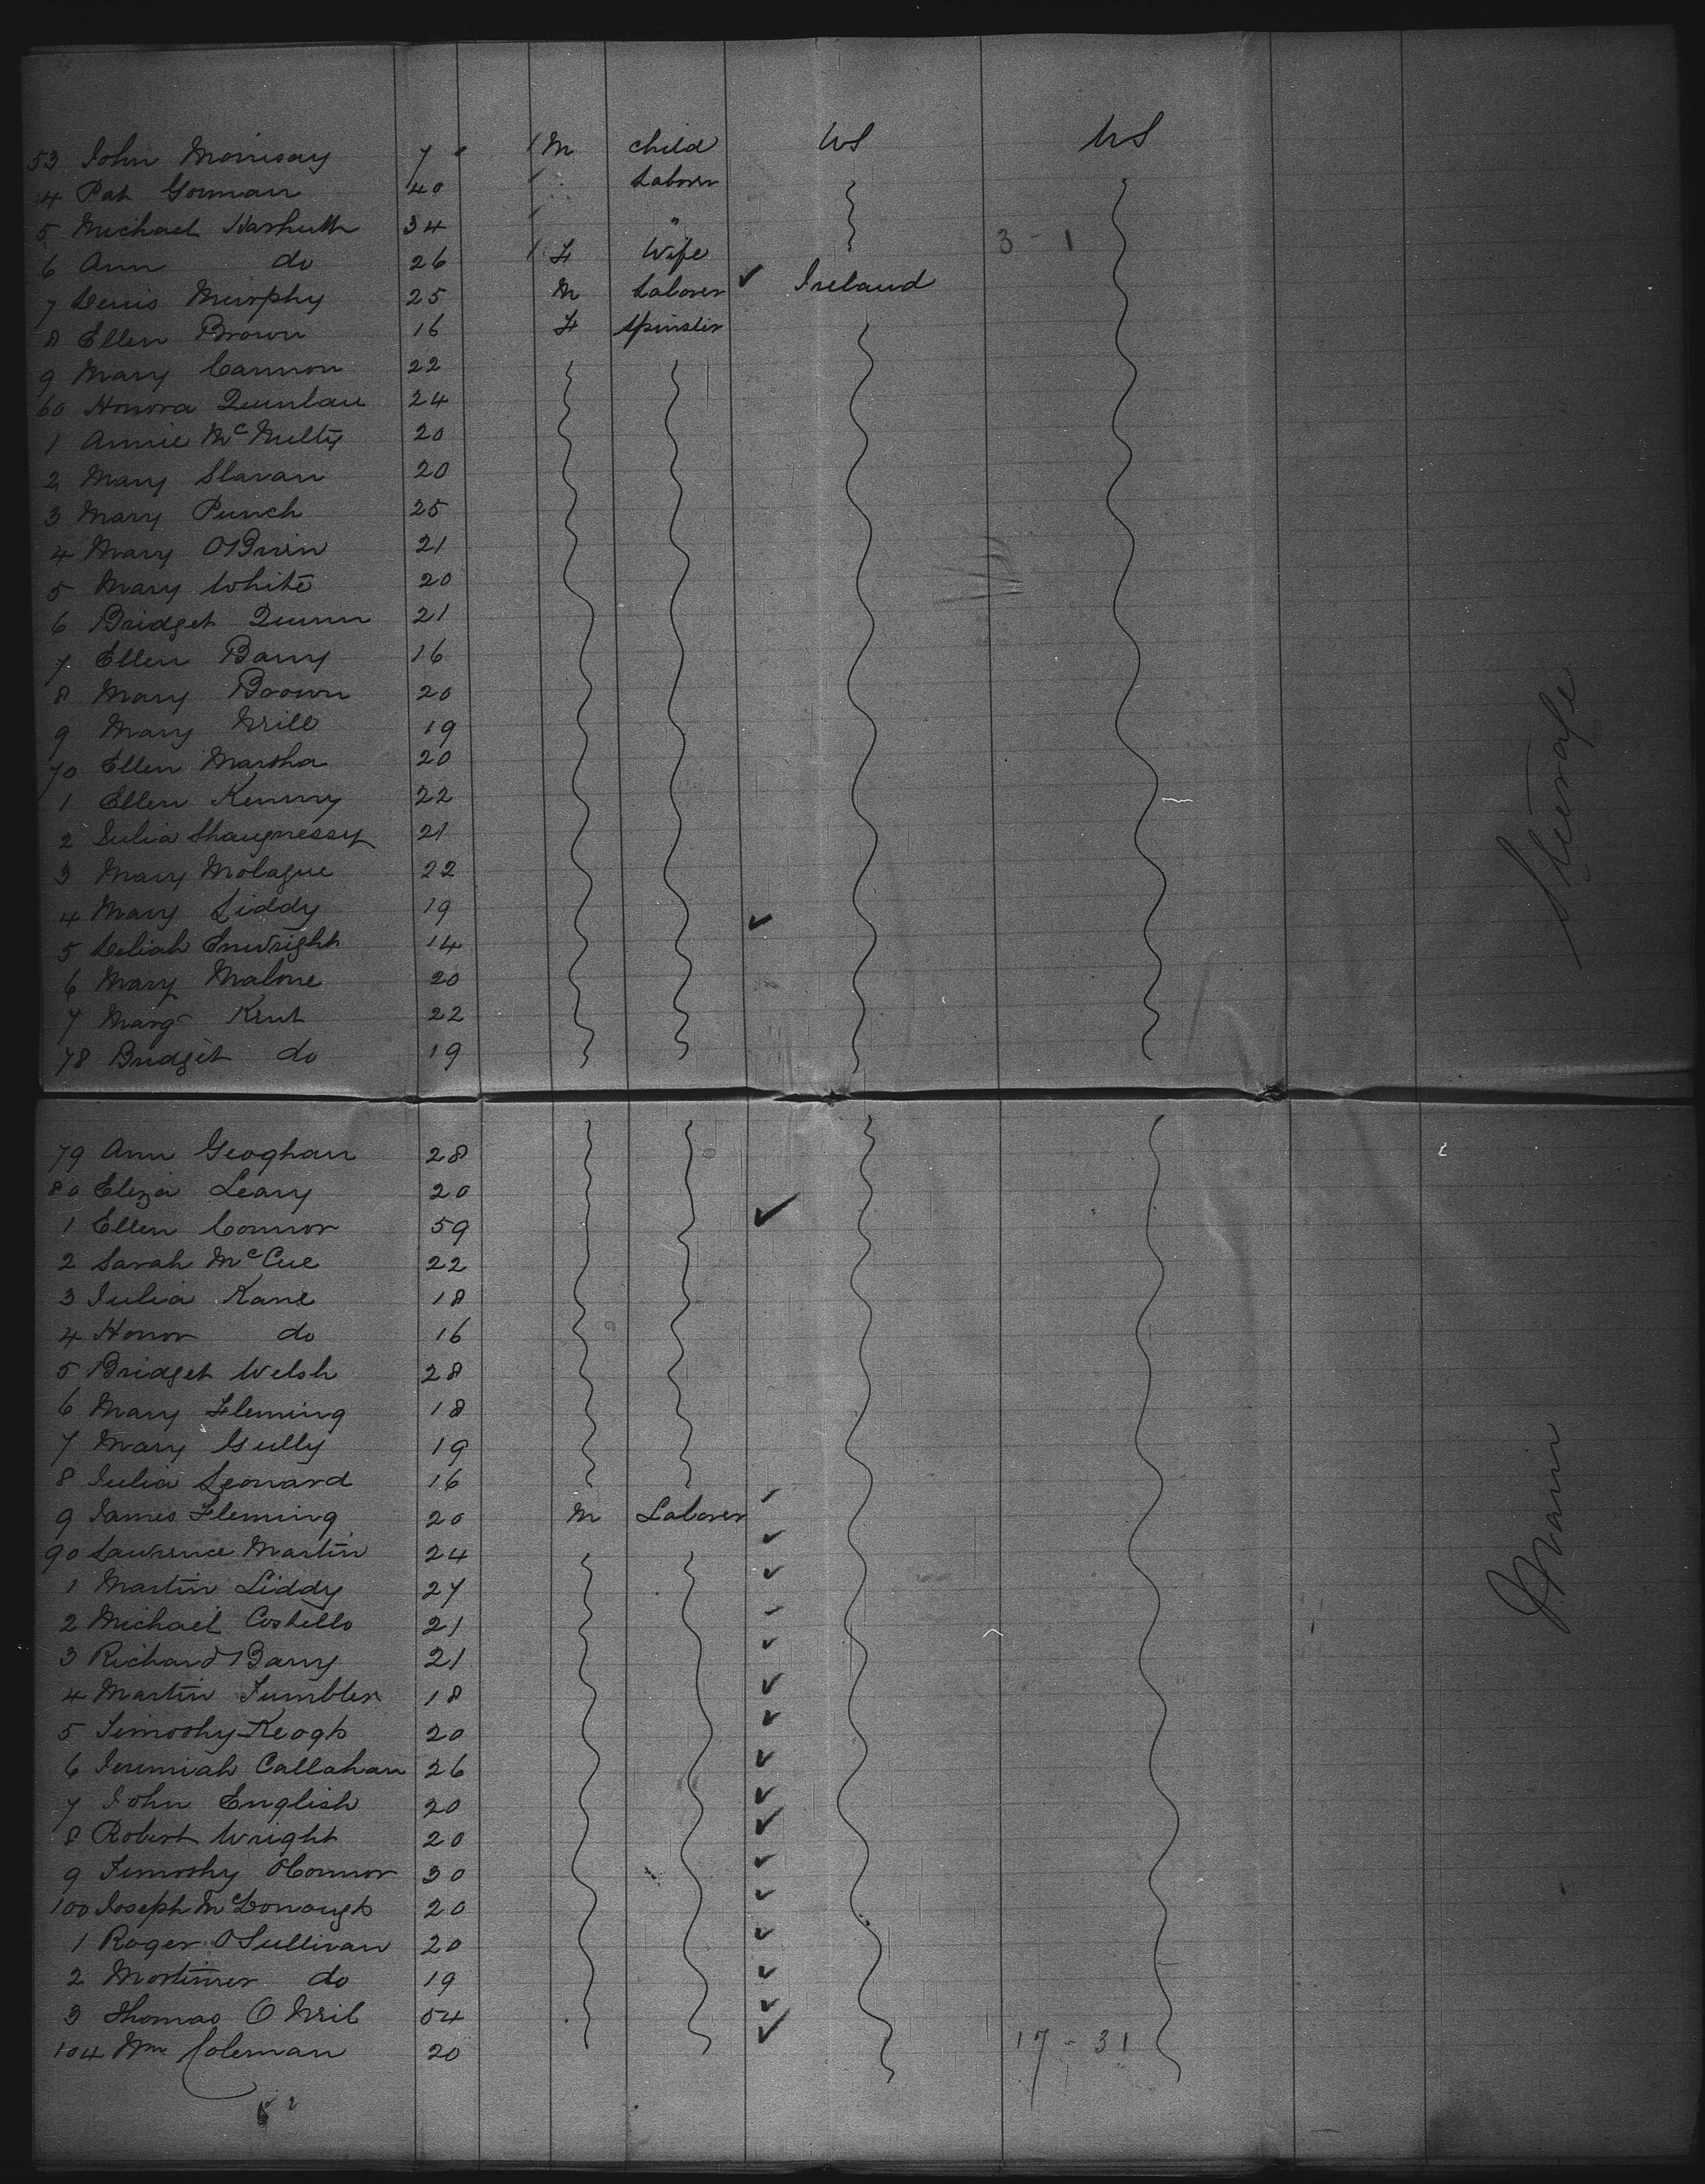 53 John Morrisay 7 1 M child US US
4 Pat Gorman 40 Laborer
5 Michael 34 " 3 - 1
6 Ann do 26 1 F Wife
7 Denis Murphy 25 M Laborer ✓ Ireland
8 Ellen Brown 16 F Spinster
9 Mary Cannon 22
60 Honora Quinlan 24
1 Annie McNulty 20
2 Mary Slavan 20
3 Mary Punch 25
4 Mary O'Brien 21
5 Mary White 20
6 Bridget Quinn 21
7 Ellen Barry 16
8 Mary Brown 20
9 Mary Neill 19
70 Ellen Martha 20
1 Ellen Kenny 22
2 Julia Shaugnessy 21
3 Mary Molague 22
4 Mary Liddy 19 ✓
5 Deliah Enwright 14
6 Mary Malone 20
7 Marg Kent 22
78 Bridget do 19
Steerage
79 Ann Geoghan 28
80 Eliza Leary 20
1 Ellen Connor 59 ✓
2 Sarah McCue 22
3 Julia Kane 18
4 Honor do 16
5 Bridget Welsh 28
6 Mary Fleming 18
7 Mary Gully 19
8 Julia Leonard 16
9 James Fleming 20 M Laborer ✓
90 Lawrence Martin 24 ✓
1 Martin Liddy 27 ✓
2 Michael Costello 21 ✓
3 Richard Barry 21 ✓
4 Martin Tumbler 18 ✓
5 Timothy Keogh 20 ✓
6 Jeremiah Callahan 26 ✓
7 John English 20 ✓
8 Robert Wright 20 ✓
9 Timothy O'Connor 30 ✓
100 Joseph McDonough 20 ✓
1 Roger O'Sullivan 20 ✓
2 Mortimer do 19 ✓
3 Thomas O'Neil 54 ✓
104 Wm Coleman 20 ✓ 17 - 31